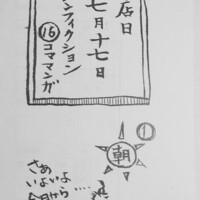 店日
七月十七日
ンフィクション
⑯コママンガ
①
朝
さあいよ
いよ